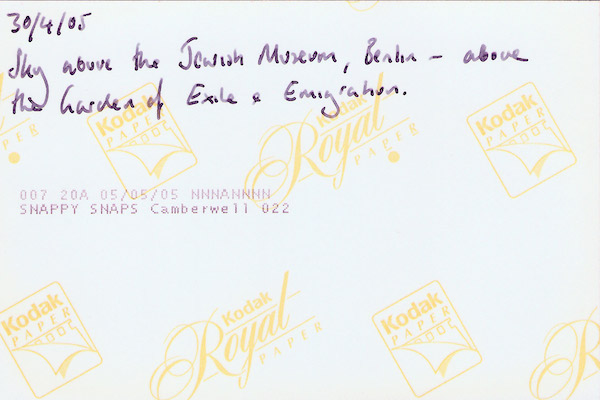 30/4/05
Sky above the Jewish Museum, Berlin – above
the Garden of Exile & Emigration.
Kodak PAPER
Kodak Royal PAPER
Kodak PAPER
PAPER
007 20A 05/05/05 NNNANNNN
SNAPPY SNAPS Camberwell 022
Kodak PAPER
Kodak Royal PAPER
Kodak PAPER